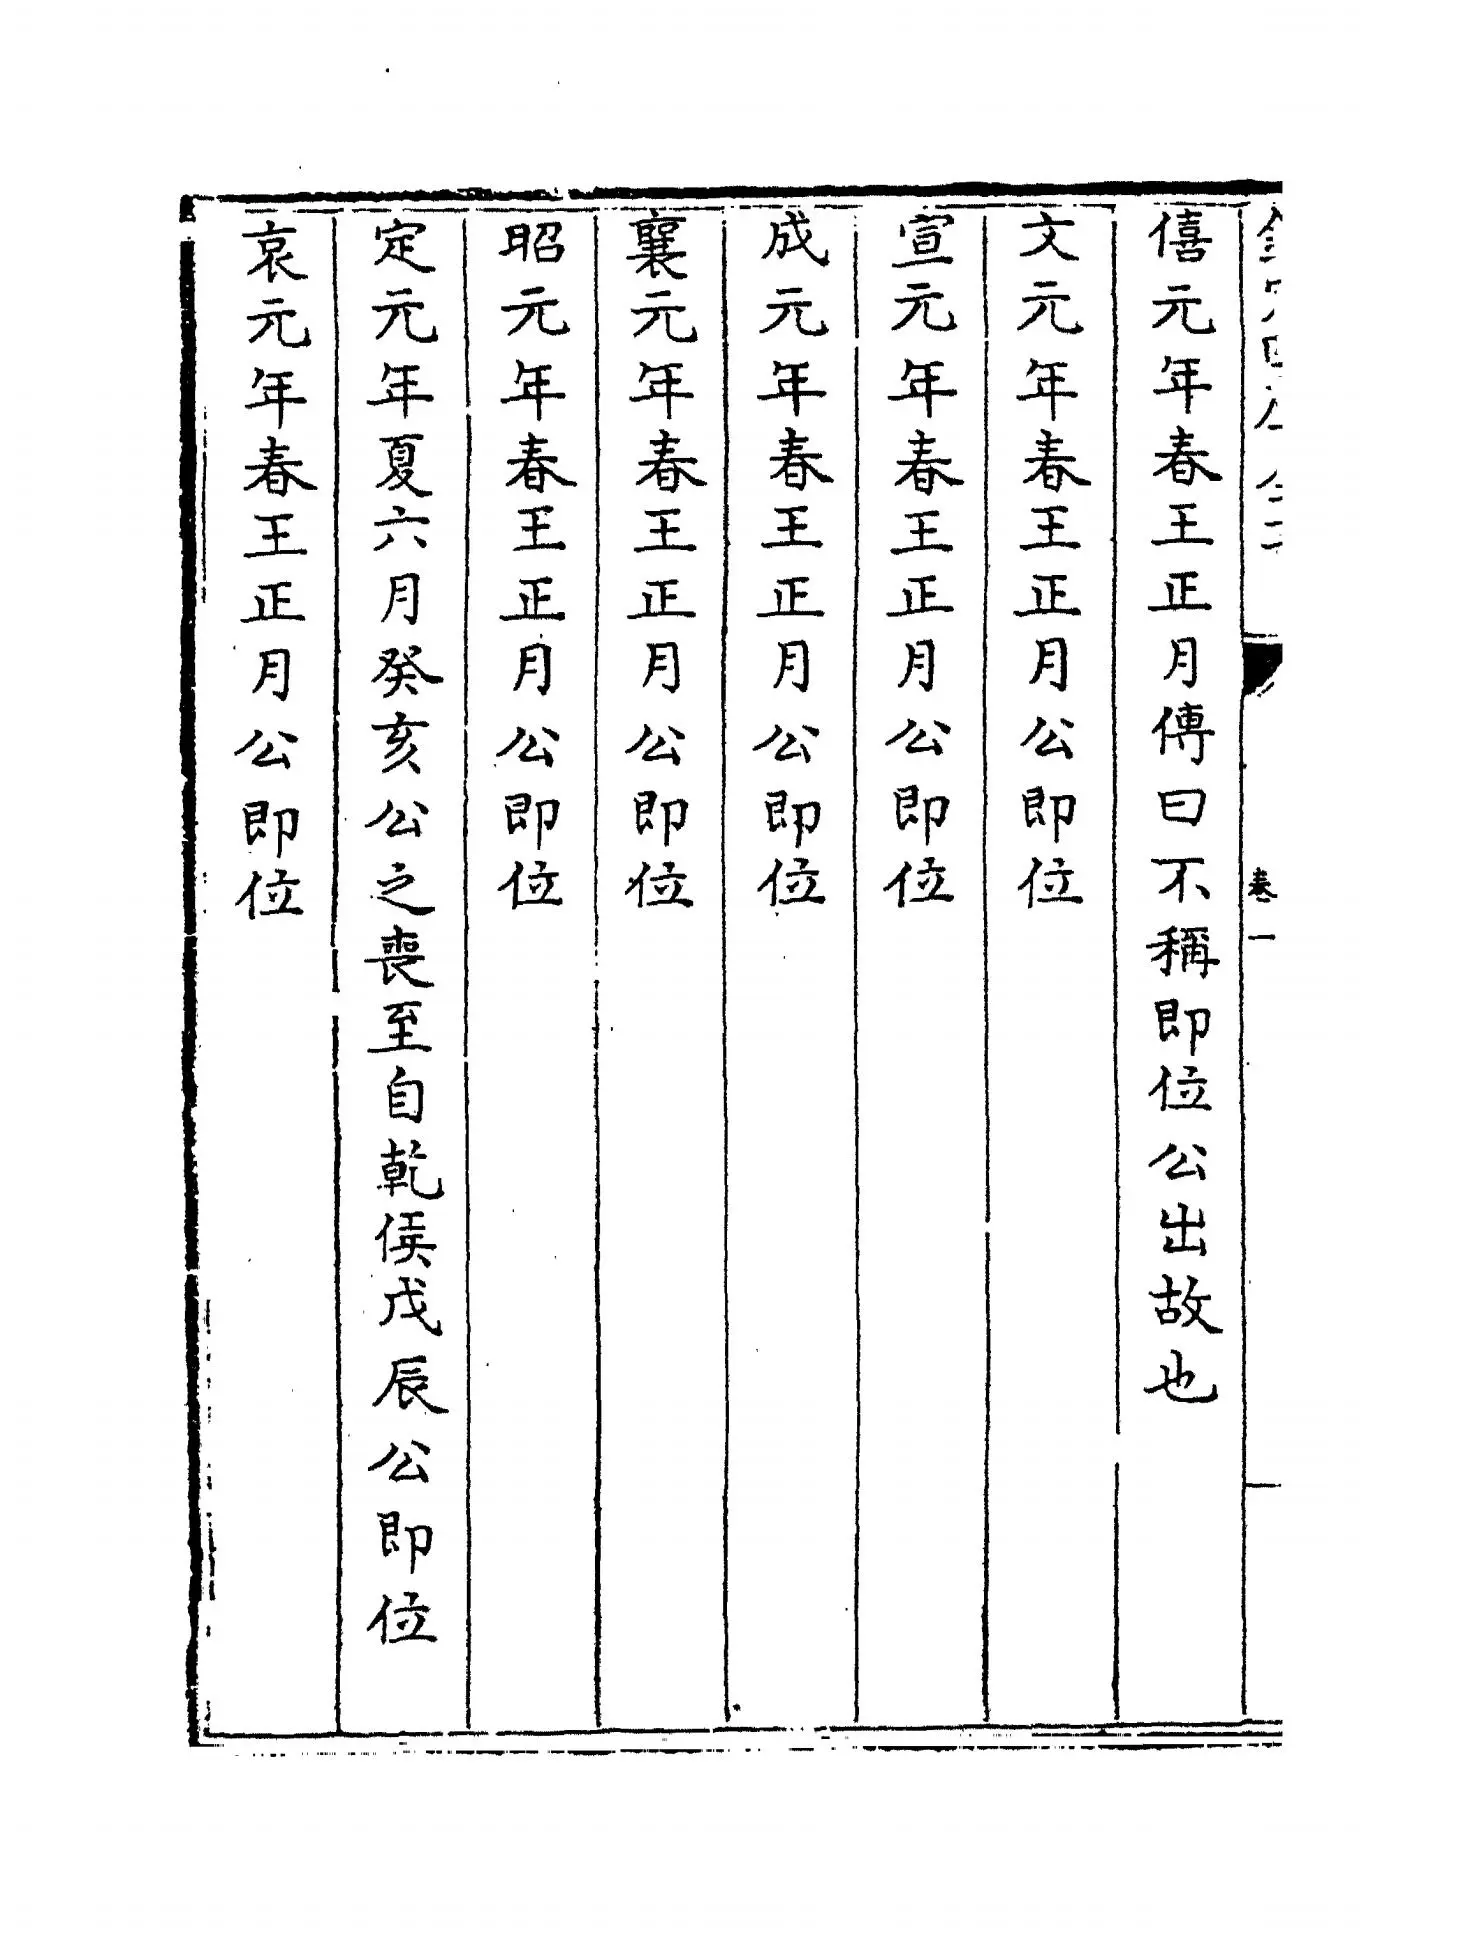 卷一
僖元年春王正月傳曰不稱即位公出故也
文元年春王正月公即位
宣元年春王正月公即位
成元年春王正月公即位
襄元年春王正月公即位
昭元年春王正月公即位
定元年夏六月癸亥公之喪至自乾侯戊辰公即位
哀元年春王正月公即位